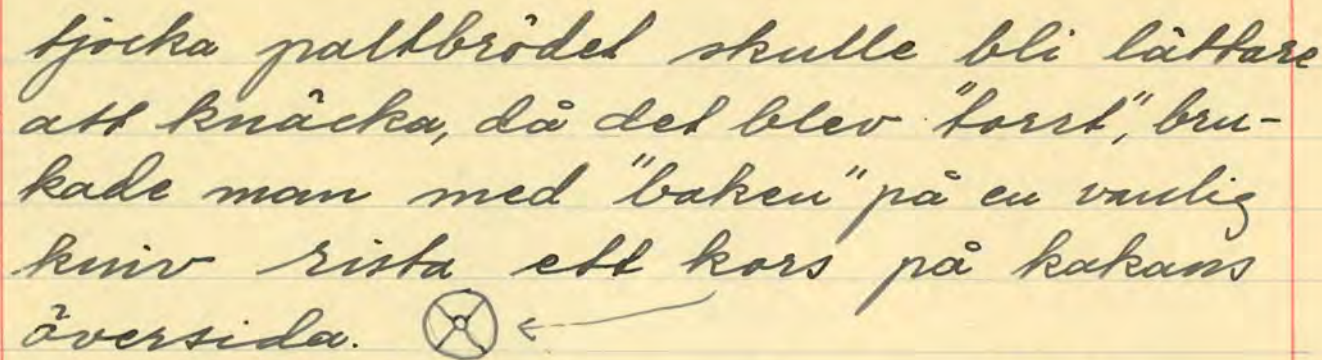 tjocka paltbrödet skulle bli lättare
att knäcka, då det blev "torrt", bru-
kade man med "baken" på en vanlig
kniv rista ett kors på kakans
översida.